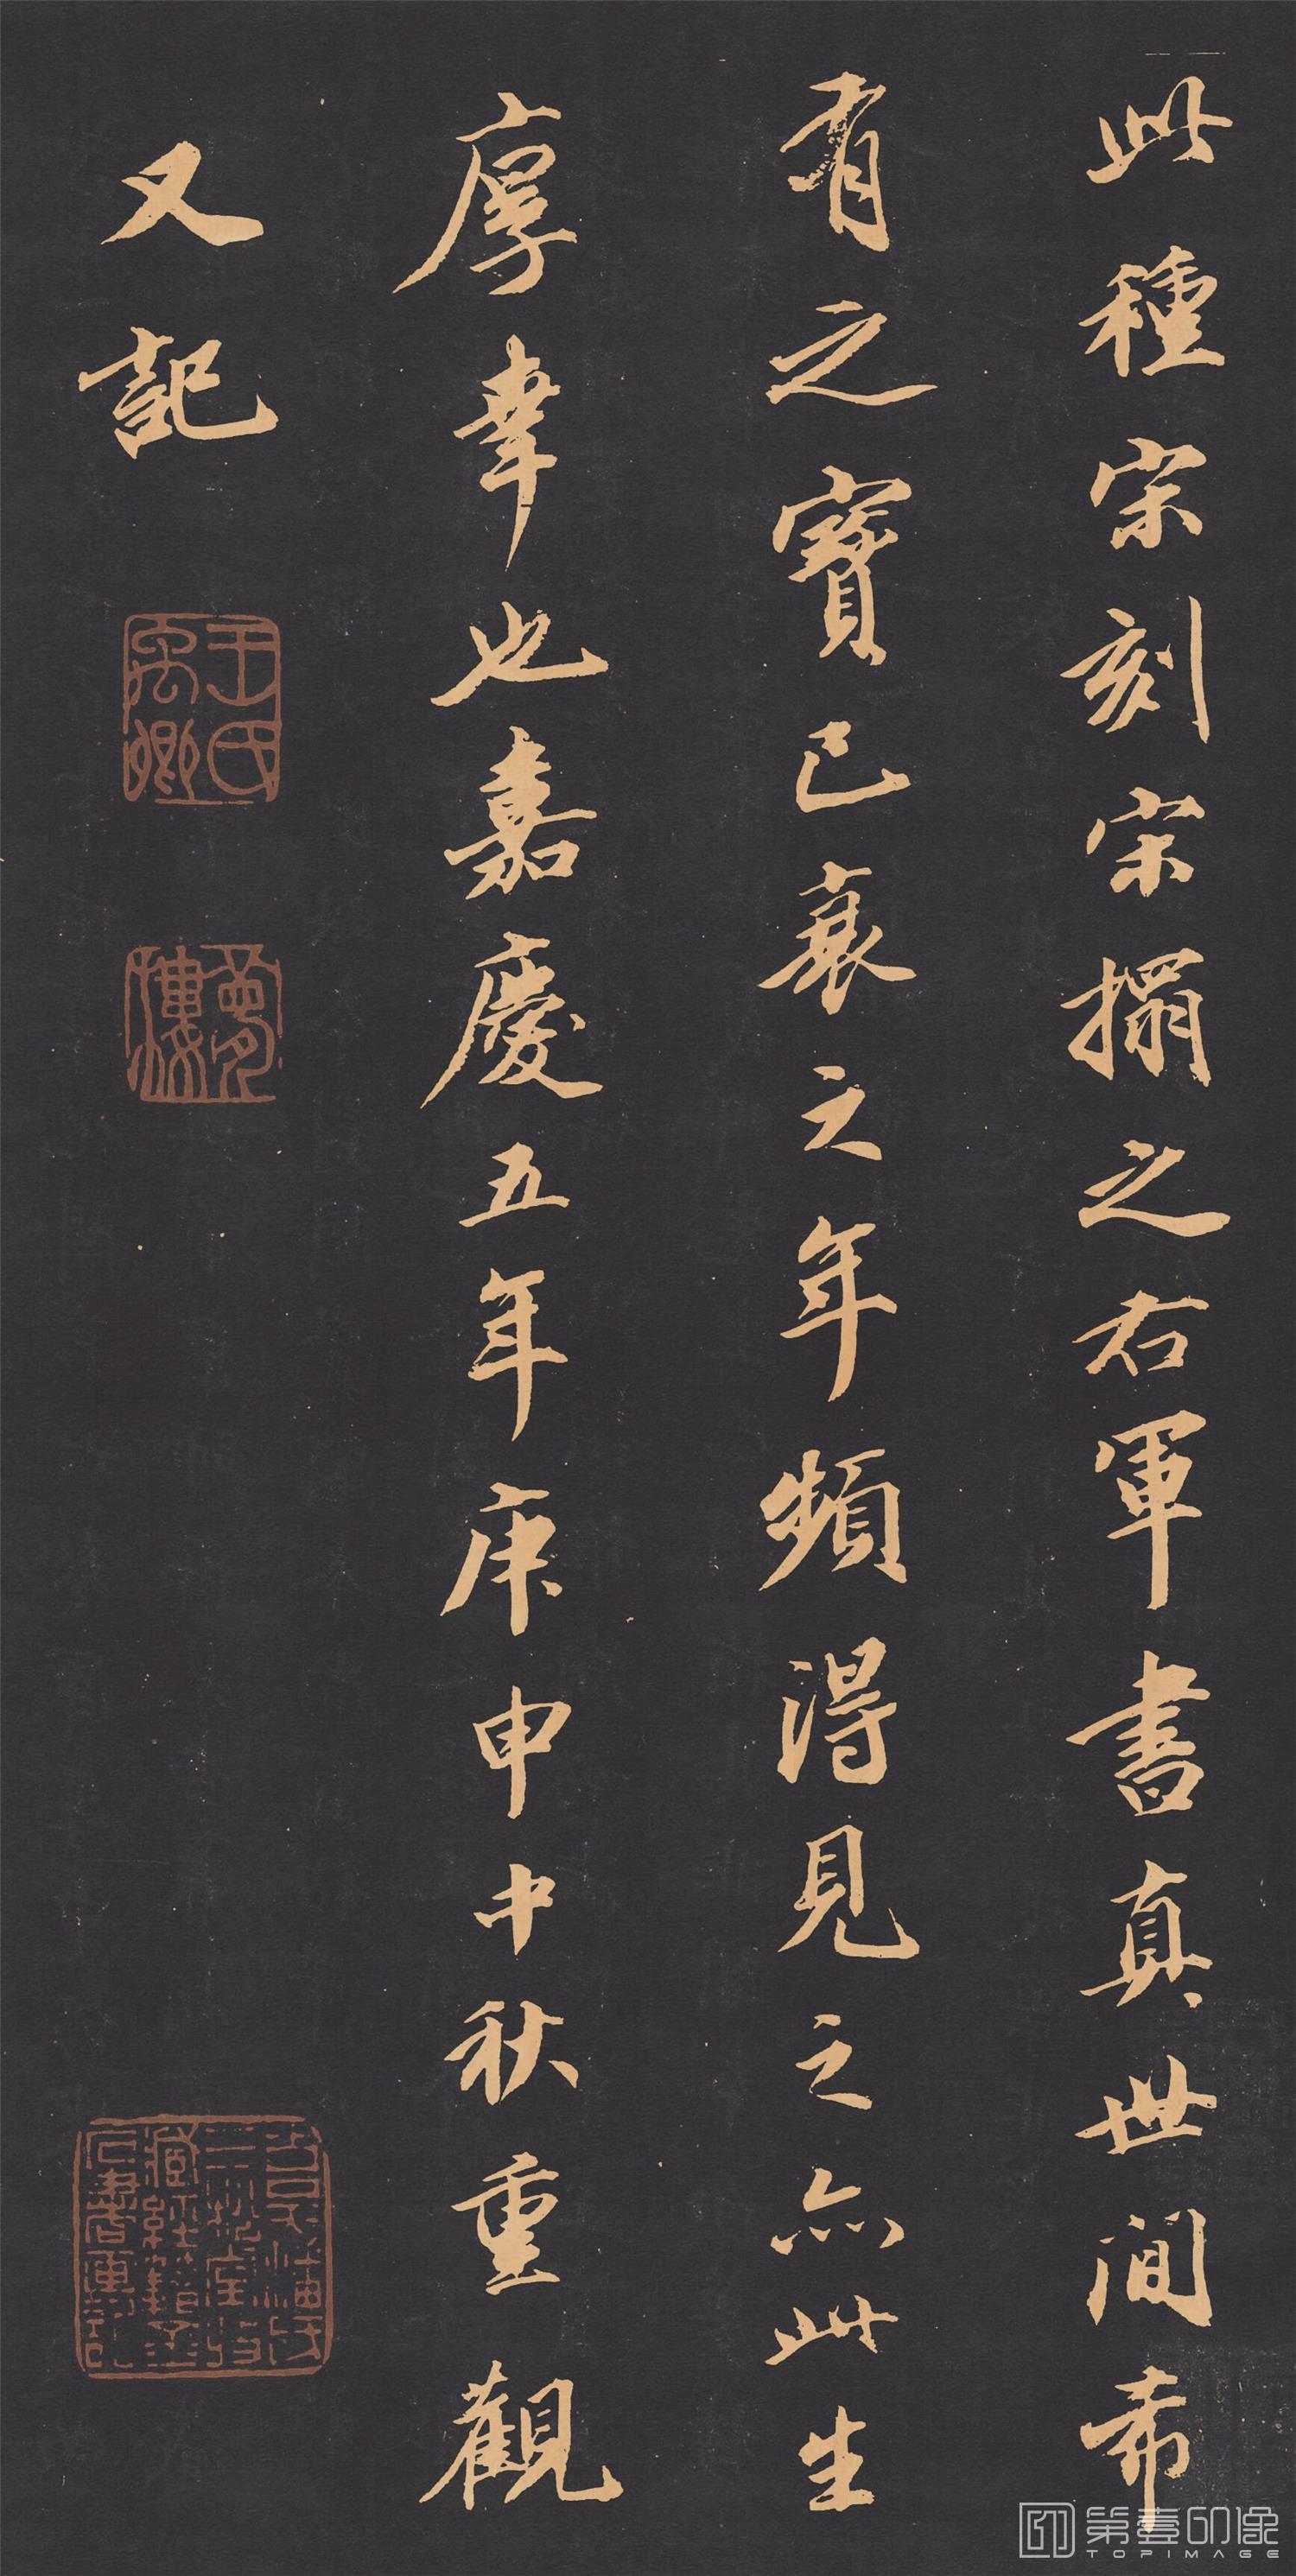 此種宋刻宋搨之右軍書真世間希
有之寶已衰之年頻得見之亦此生
厚幸也嘉慶五年庚申中秋重觀
又記
王氏禹卿
夢樓
第壹印像
TOPIMAGE